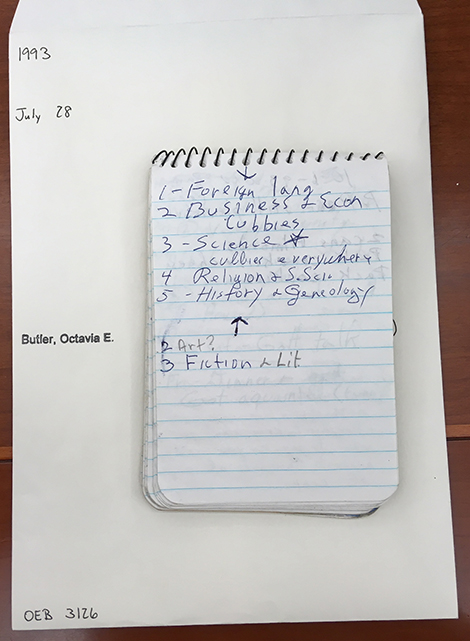 1993
July 28
1 - Foreign lang
2 Business & Econ
Cubbies
3 - Science
cubbies everywhere
4 Religion & S.Sci.
5 - History & Geneology
2 Art?
3 Fiction & Lit
Butler, Octavia E.
OEB 3126